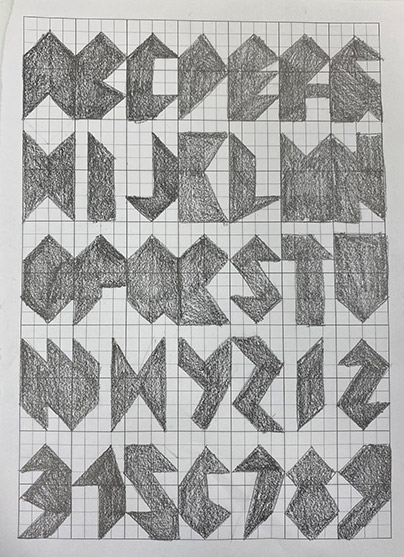 ABCDEFG
HIJKLMN
OPQRSTU
VWXYZ12
3456789